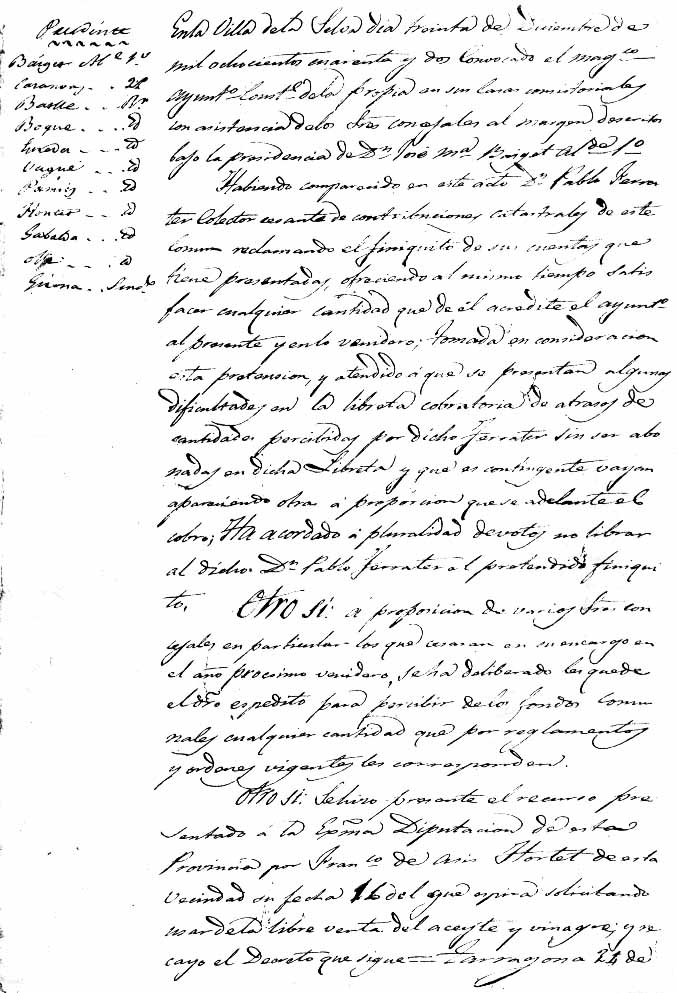 Presidente
Baiget Al.e 1.o
Casanovas . . 2.o
Batlle . . . R.r
Bogue . . . id
id
Vagué . . id
id
id
Gabalda . . . id
id
Girona . Sind.o
En la Villa de la Selva dia trointa de Diciembre de
mil ochocientos cuarenta y dos Convocado el mag.co
ayunt.o Const.l de la propia en sus Casas consistoriales
con asistencia de los Sres concejales al margen descritos
bajo la presidencia de D.n José M.a Baiget Al.de 1.o
Habiendo comparecido en este acto D.n Pablo Ferra
ter Colector cesante de contribuciones catastrales de este
Comun reclamando el finiquito de sus cuentas que
tiene presentadas, ofreciendo al mismo tiempo satis
facer cualquier cantidad que de él acredite el ayunt.o
al presente y en lo venidero; tomada en consideracion
esta pretension, y atendido á que se presentan algunas
dificultades en la libreta cobratoria de atrasos de
cantidades percibidas por dicho Ferrater sin ser abo
nadas en dicha Libreta y que es contingente vayan
apareciendo otras á proporcion que se adelante el
cobro; Ha acordado á pluralidad de votos no librar
al dicho D.n Pablo Ferrater el pretendido finiqui
to. Otro si: á proposicion de varios Sres con
cejales en particular los que cesaran en su encargo en
el año procsimo venidero, se ha deliberado les quede
el dro espedito para percibir de los fondos Comu
nales cualquier cantidad que por reglamentos
y ordenes vigentes les corresponden.
Otro si: Se hizo presente el recurso pre
sentado á la Exma Diputacion de esta
Provincia por Fran.co de Asis Hortet de esta
vecindad su fecha 16 del que espira solicitando
usar de la libre venta del aceyte y vinagre; y re
cayo el Decreto que sigue = Tarragona 24 de